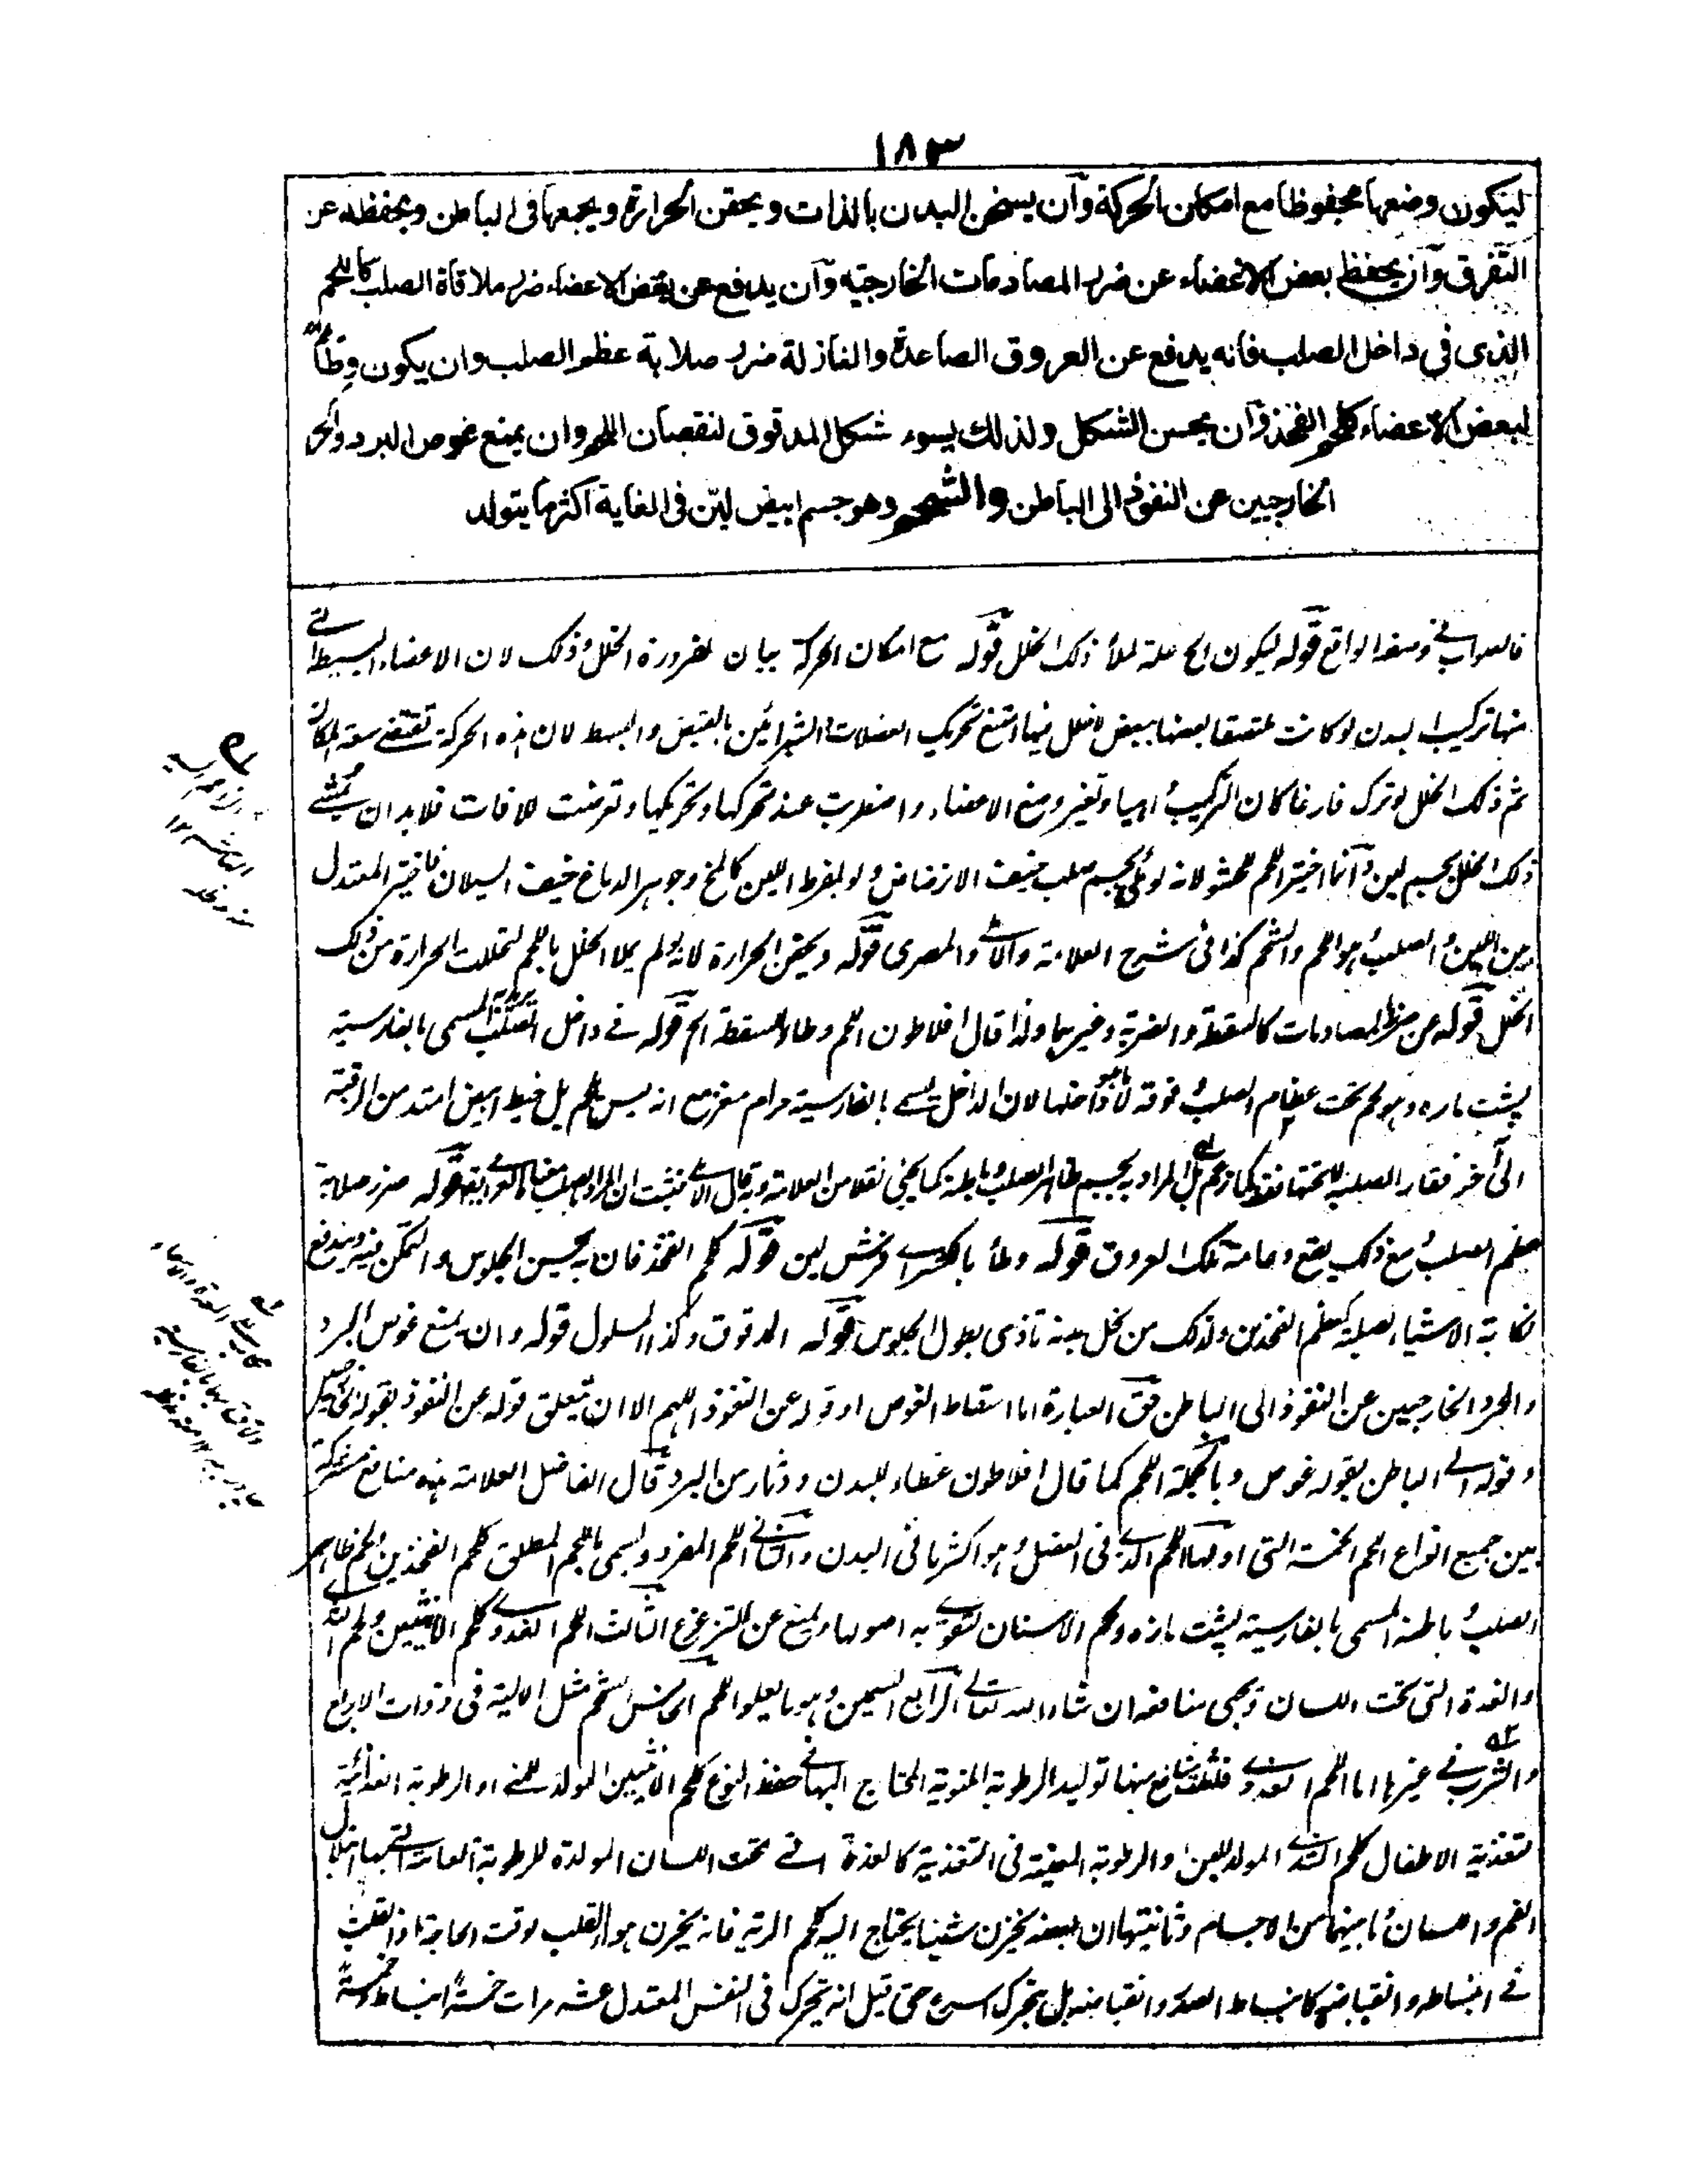 ١٨٣
ليكون وضعها محفوظا مع امكان الحركة وآن يسخن البدن بالذات ويحقن الحرارة ويجمعها فى الباطن ويحفظه عن
التفرق وآن يحفظ بعض الاعضاء عن ضرر المصادمات الخارجيه وآن يدفع عن بعض الاعضاء ضرر ملاقاة الصلب كاللحم
الذى فى داخل الصلب فانه يدفع عن العروق الصاعدة والنازلة ضرر صلابة عظم الصلب وان يكون وِطَأً
لبعض الاعضاء كلحم الفخذ وآن يحسن الشكل ولذلك يسوء شكل المدقوق لنقصان اللحم وان يمنع غوص البرد والحر
الخارجيين عن النفوذ الى الباطن والشحم وهو جسم ابيض ليّن فى الغاية اكثرها يتولد
قوله ليكون الخ علة لملأ ذلك الخلل قوله مع امكان الحركة بيان لضرورة الخلل وذلك لان الاعضاء البسيطة التے
منها تركيب البدن لو كانت ملتصقا بعضها ببعض لا خلل فيها امتنع تحريك العضلات والشرائين بالقبض والبسط لان هذه الحركة تقتضے سعة المكان
ثم ذلك الخلل لو ترك فارغا كان التركيب واهيا وتغير وضع الاعضاء واضطربت عند تحركها وتحريكها وتعرضت للافات فلابد ان يحشے
ذلك الخلل بجسم لين وآنما اختير اللحم للحشو لانه لو ملئ بجسم صلب خيف الارتضاض ولو بمفرط اللين كالمخ وجوهر الدماغ خيف السيلان فاختير المعتدل
بين اللين والصلب وهو اللحم والشحم كذا فى شرح العلامة والآملے والمصرى قوله ويحقن الحرارة لانه لو لم يملا الخلل باللحم لتحللت الحرارة من ذلك
الخلل قوله عن ضرر المصادمات كالسقطة والضربة وغيرهما ولذا قال افلاطون اللحم وطاء للسقطة الخ قوله فے داخل الصلب المسمى بالفارسية
پشت مازه وهو لحم تحت عظام الصلب وفوقه لا ما هو داخلها لان الداخل يسمے بالفارسية حرام مغز مع انه ليس بلحم بل خيط ابيض امتد من الرقبة
الى آخر فقار الصلب قوله ضرر صلابة
عظم الصلب مع ذلك يقع دعامة تلك العروق قوله وطأ بالكسر اے فرش لين قوله كلحم الفخذ فان به يحسن الجلوس والتمكن فيه ويندفع
نكاية الاشياء الصلبة كعظم الفخذين ولذلك من نحل بدنه تاذى بطول الجلوس قوله المدقوق وكذا المسلول قوله وان يمنع غوص البرد
والحر الخارجيين عن النفوذ الى الباطن حق العبارة اما اسقاط الغوص او قوله عن النفوذ اللهم الا ان يتعلق قوله عن النفوذ بقوله
وقوله الے الباطن بقوله غوص وبالجملة اللحم كما قال افلاطون غطاء للبدن ودثار من البرد قال الفاضل العلامة هذه منافع مشتركة
بين جميع انواع اللحم الخمسة التى اولها اللحم الذے فى العضل وهو اكثر ما فى البدن والثانے اللحم المفرد ويسمى باللحم المطلق كلحم الفخذين ولحم ظاهر
الصلب وباطنه المسمى بالفارسية پشت مازه ولحم الاسنان لتقوے به اصولها ويمنع عن التزعزع الثالث اللحم الغددے كلحم الانثيين ولحم الثدے
والغدة التى تحت اللسان وتجى منافعه ان شاء الله تعالے الرابع السمين وهو ما يعلو اللحم الخامس الشحم مثل الالية فى ذوات الاربع
والثرب فے غيرها اما اللحم الغددے فله منافع منها توليد الرطوبة المنوية المحتاج اليها فے حفظ النوع كلحم الانثيين المولد للمنے او الرطوبة الغذائية
لتغذية الاطفال كلحم الثدے المولد للبن والرطوبة المعينة فى التغذية كالغدة التے تحت اللسان المولدة للرطوبة اللعابية التے بها ابتلال
الفم واللسان وما بينهما من الاجسام وثانيتها ان بعضه يخزن شيئا يحتاج اليه كلحم الرئة فانه يخزن هواء القلب لوقت الحاجة اذ القلب
فے انبساطه وانقباضه كانبساط الصدر وانقباضه بل يتحرك اسرع حتى قيل انه يتحرك فى النفس المعتدل عشر مرات خمسة انبساط وخمسة